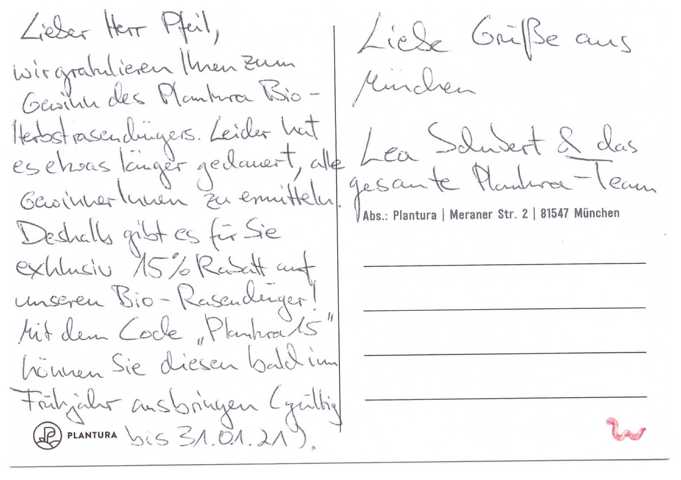 Lieber Herr Pfeil,
wir gratulieren Ihnen zum
Gewinn des Plantura Bio-
Herbstrasendüngers. Leider hat
es etwas länger gedauert, alle
GewinnerInnen zu ermitteln.
Deshalb gibt es für Sie
exklusiv 15% Rabatt auf
unseren Bio-Rasendünger!
Mit dem Code „Plantura15"
können Sie diesen bald im
Frühjahr ausbringen (gültig
bis 31.01.21).
PLANTURA
Liebe Grüße aus
München
Lea Schubert & das
gesamte Plantura-Team
Abs.: Plantura | Meraner Str. 2 | 81547 München